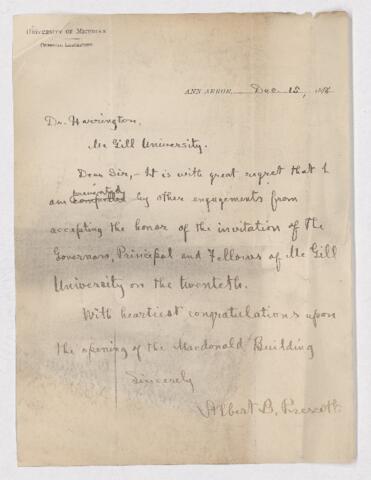 UNIVERSITY OF MICHIGAN
CHEMICAL LABORATORY
ANN ARBOR, Dec 15, 1898
Dr. Harrington,
Mc Gill University.
Dear Sir,- It is with great regret that I
prevented
am compelled by other engagements from
accepting the honor of the invitation of the
Governors, Principal and Fellows of Mc Gill
University on the twenteth.
With heartiest congratulations upon
the opening of the Macdonald Building
Sincerely
Albert B. Prescott